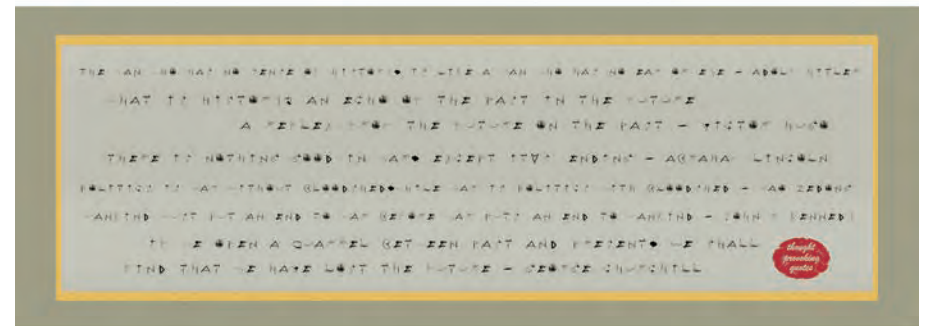 THE MAN WHO HAS NO SENSE OF HISTORY, IS LIKE A MAN WHO HAS NO EAR OR EYE - ADOLF HITLER
WHAT IS HISTORY? AN ECHO OF THE PAST IN THE FUTURE
A REFLEX FROM THE FUTURE ON THE PAST - VICTOR HUGO
THERE IS NOTHING GOOD IN WAR, EXCEPT ITS ENDING - ABRAHAM LINCOLN
POLITICS IS WAR WITHOUT BLOODSHED, WHILE WAR IS POLITICS WITH BLOODSHED - MAO ZEDONG
MANKIND MUST PUT AN END TO WAR BEFORE WAR PUTS AN END TO MANKIND - JOHN F KENNEDY
IF WE OPEN A QUARREL BETWEEN PAST AND PRESENT, WE SHALL
FIND THAT WE HAVE LOST THE FUTURE - GEORGE CHURCHILL
thought
provoking
quotes